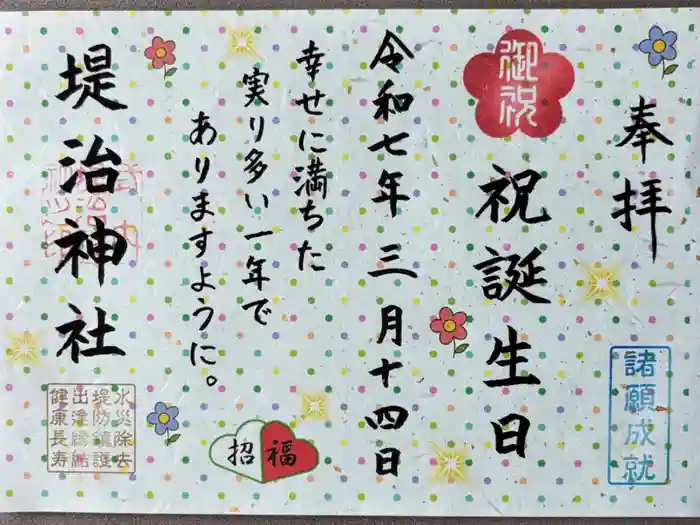 奉拝
諸願成就
御祝
祝誕生日
令和七年三月十四日
幸せに満ちた
実り多い一年で
ありますように。
招福
堤治神社
水災除去
堤防鎮護
出逢縁結
健康長寿